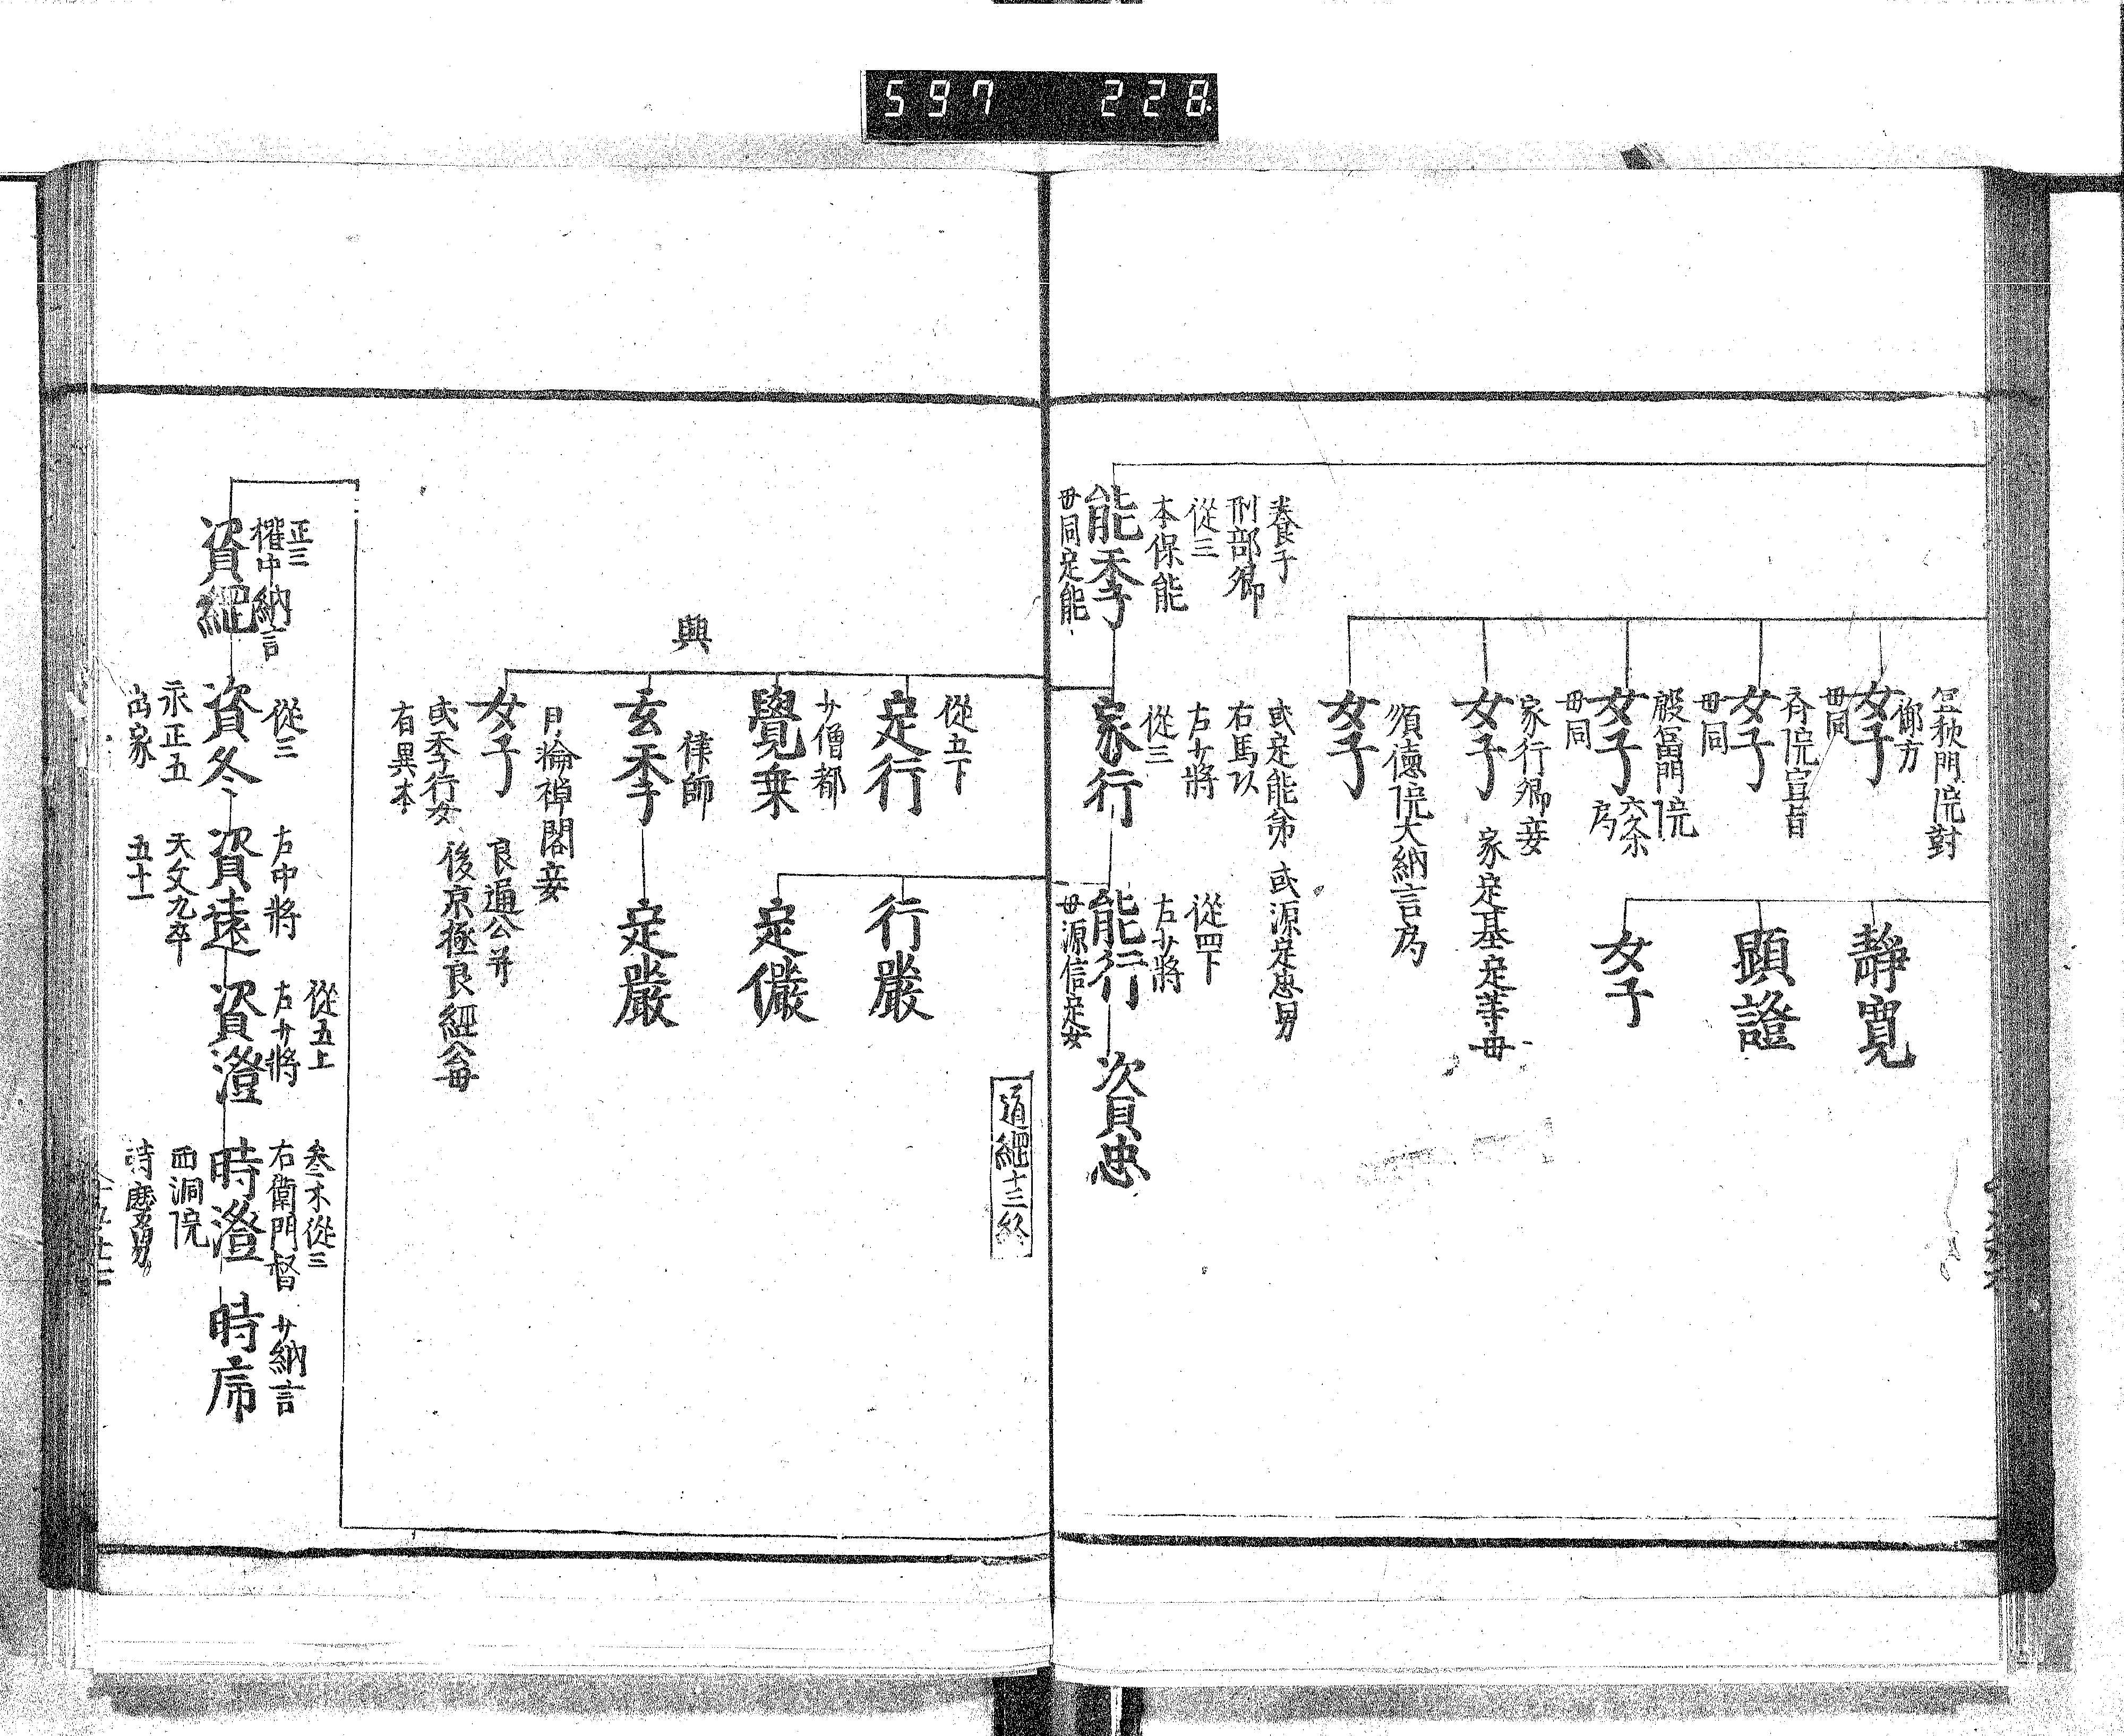 597 228
宜秋門院對
御方
女子
母同
斉院宣旨
女子
母同
殷冨門院
女子
母同
家行卿妾
女子 家定基定等母
須德院大納言局
女子
靜寛
顕證
女子
養子
刑部卿
從三
本保能
能季
母同定能
或定能弟 或源定忠男
右馬以
右少將
從三
家行
從四下
右少將
能行
母源信定女
資忠
道經十三終
從五下
定行
少僧都
覺乗
興
律師
玄季
月輪禅閤妾
女子 良通公并
後京極良經公母
或季行女
有異本
行嚴
定儼
定嚴
正三
權中納言
資經
從三
資冬
永正五
出家
右中將
資遠
天文九卒
五十一
從五上
右少將
資澄
参木從三
右衛門督
時澄
西洞院
時慶男
少納言
時庸